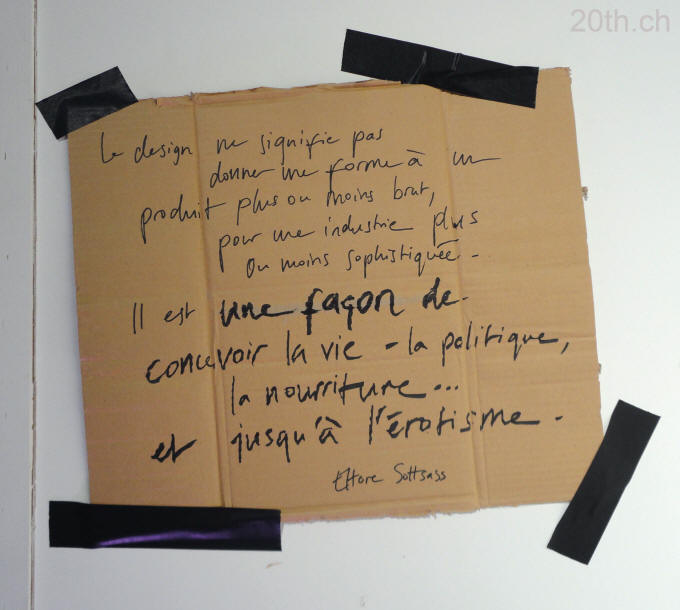 20th.ch
Le design ne signifie pas
donner une forme à un
produit plus ou moins brut,
pour une industrie plus
ou moins sophistiquée.
Il est une façon de
concevoir la vie - la politique,
la nourriture...
et jusqu'à l'érotisme.
Ettore Sottsass